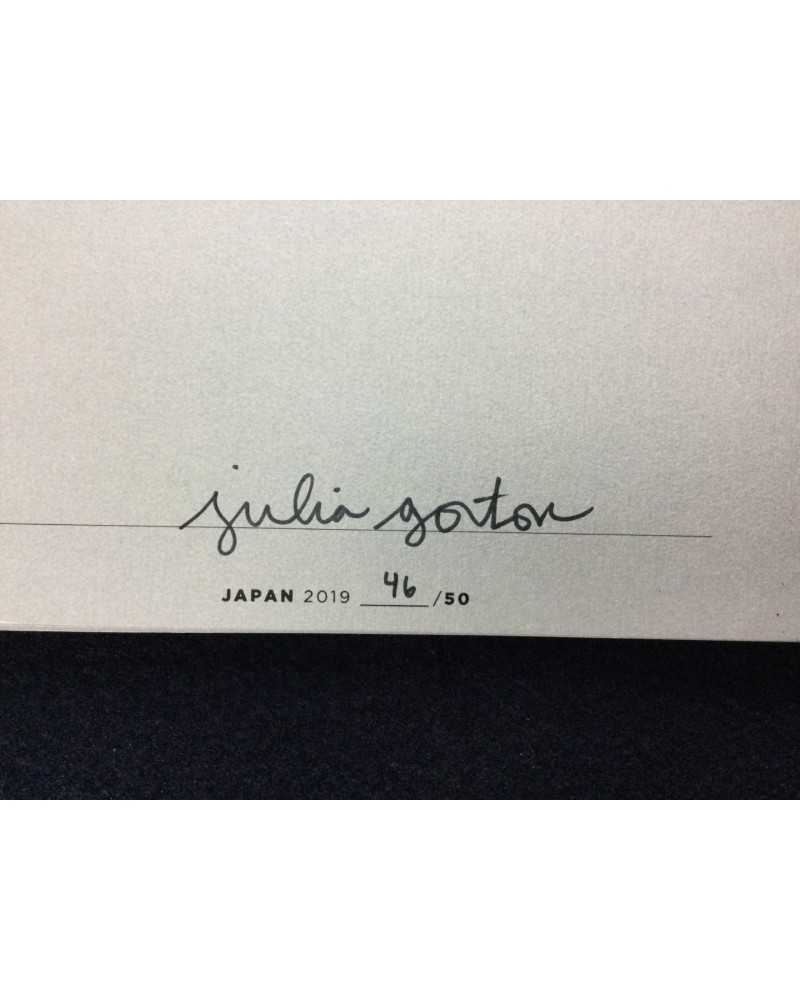 julia gorton
JAPAN 2019 46/50